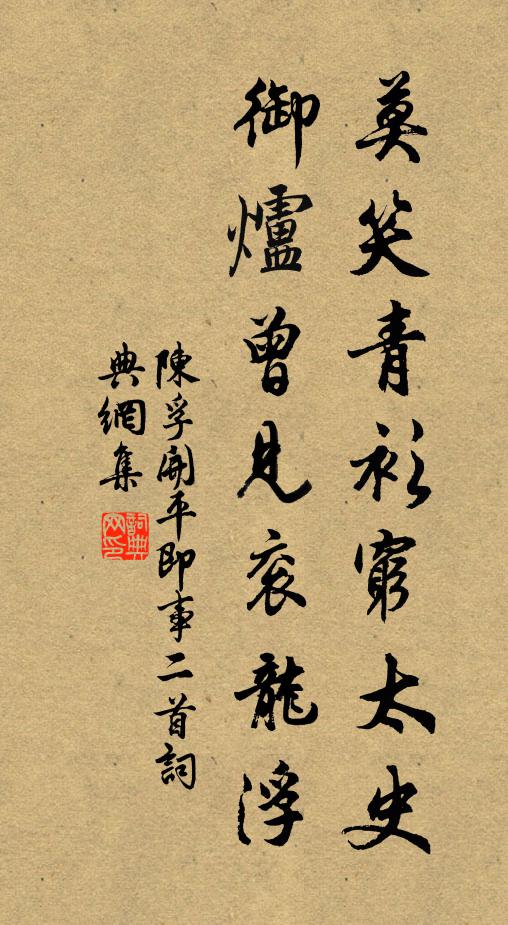 莫笑青衫窮太史
御爐曾見衮龍浮
陳孚開平即事二首詞
典網集
詞典網印